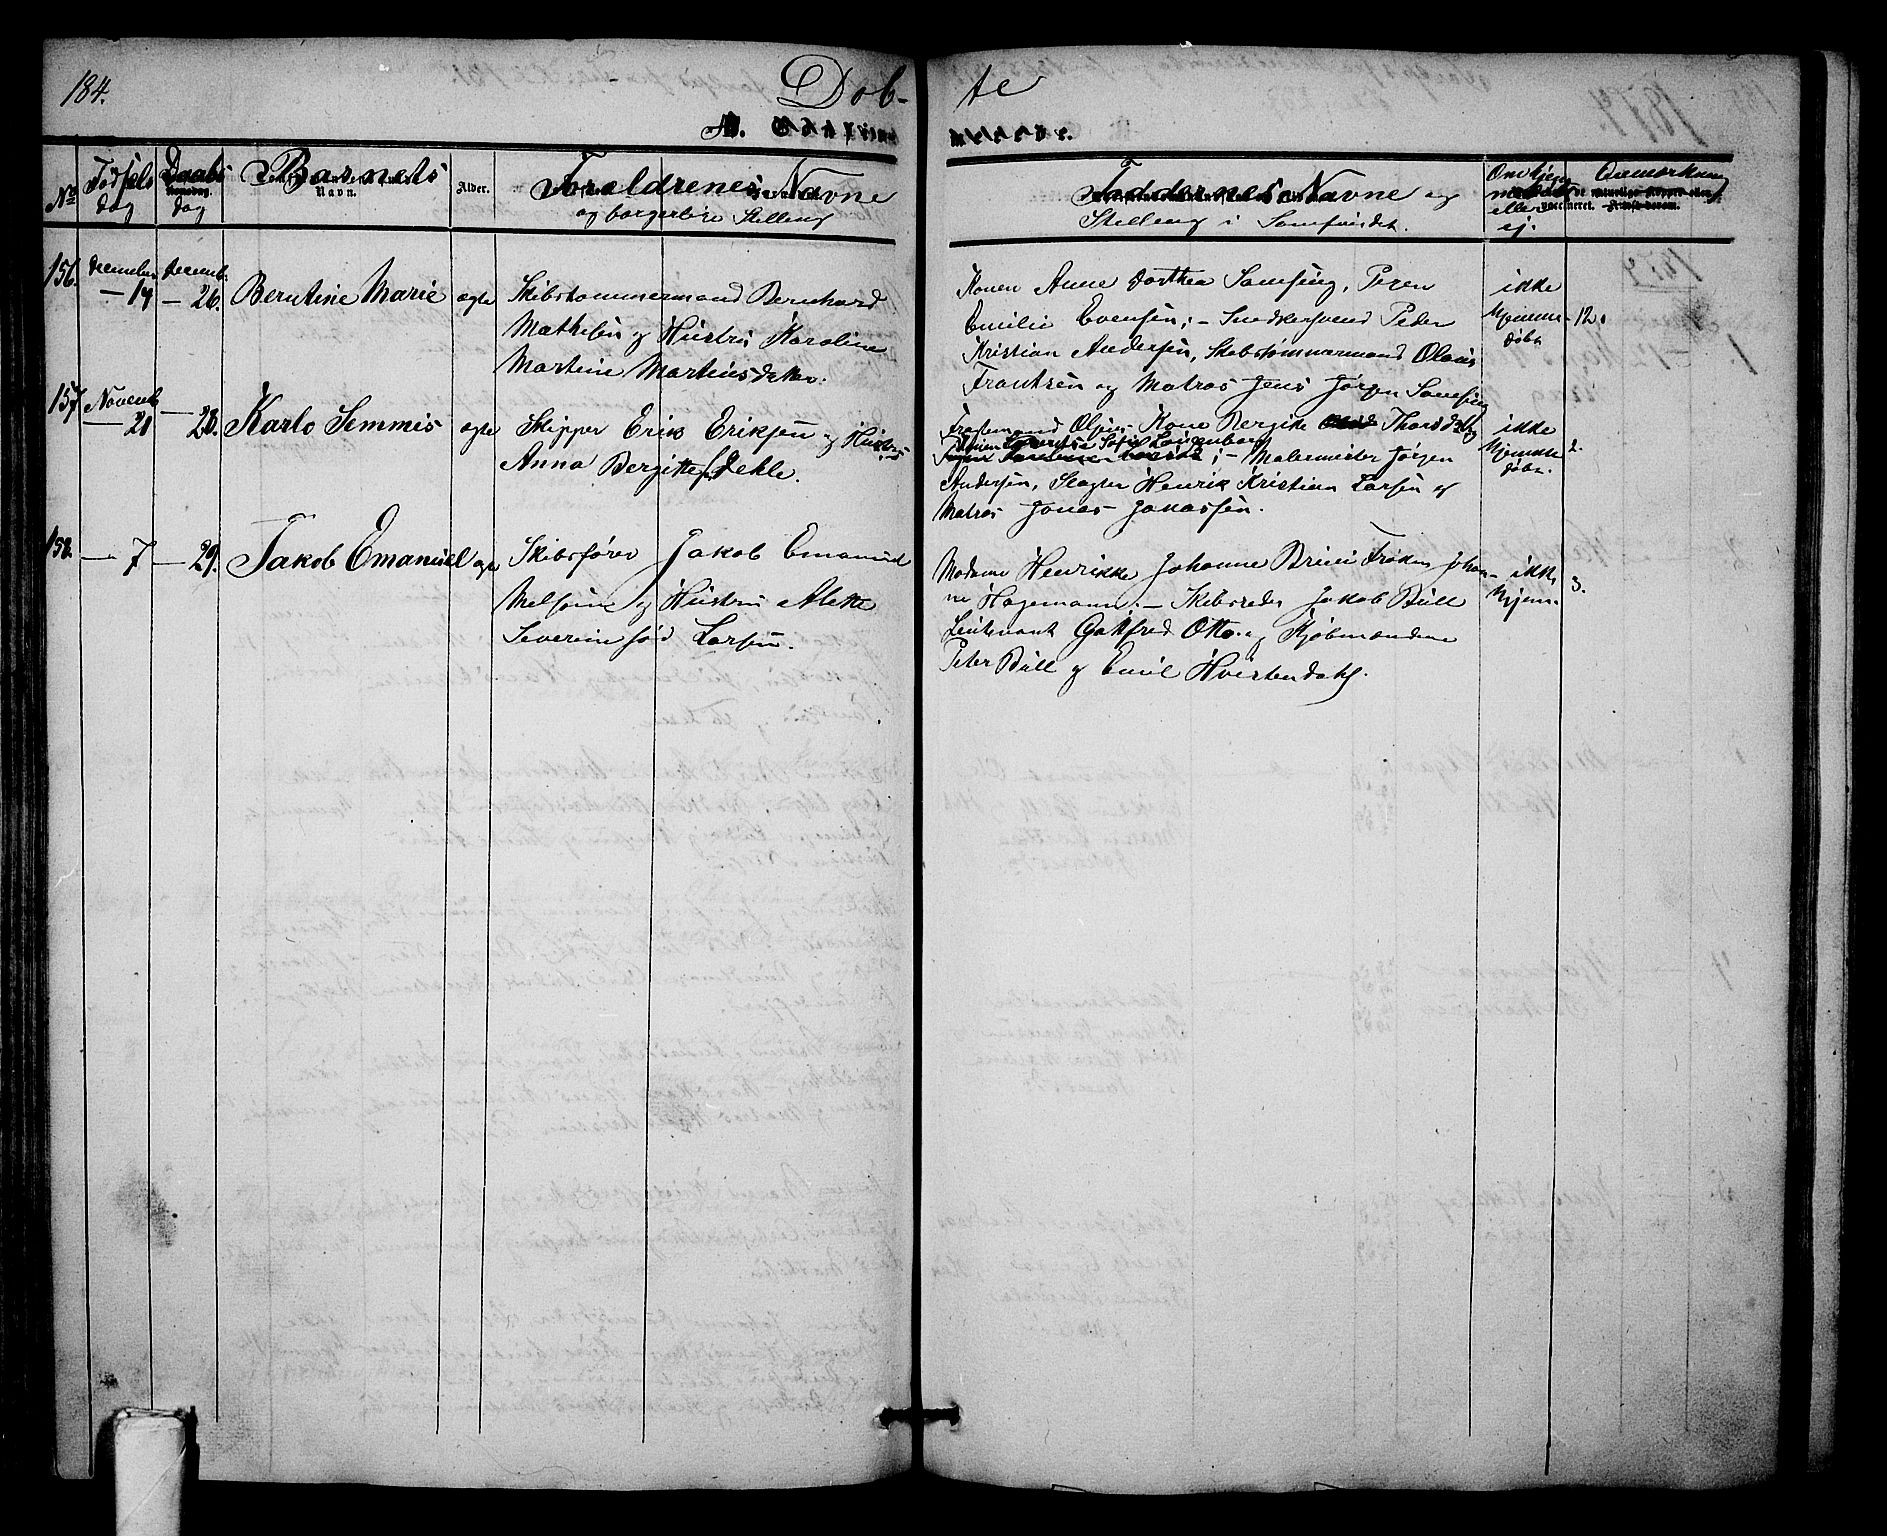 184.
Døb-
te
No
Fødsels
dag
Daabs
dag
Barnets
Navn.
Alder.
Forældrenes Navne
og borgerlige Stilling
Faddernes Navne og
Stilling i Samfundet.
Om hjem
eller
ej.
Anmærkning
156.
December
— 14
Decemb.
— 26.
Berntine Marie
ægte
Skibstømmermand Bernhard
Mathisen og Hustru Karoline
Martine Martinsdatter.
Konen Anne Dorthea Samsing, Pigen
Emilie Evensen; — Snedkersvend Peder
Kristian Andersen, Skibstømmermand Olaus
Frantsen og Matros Jens Jørgen Samsing
ikke
hjemme
døbt
12.
157
Novemb
— 21
— 28.
Karlo Semmis
ægte
Skipper Erik Eriksen og Hustru
Anna Bergitte f. Dehle.
Olsen Kone Bergitte Thorsd.
Sofie ; — Malermester Jørgen
Andersen, Slagter Henrik Kristian Larsen og
Matros Jonas Jonassen.
ikke
hjemme
døbt.
2.
158.
— 7
— 29.
Jakob Emanuel
ægte
Skibsfører Jakob Emanuel
Melsom og Hustru Alette
Severine fød Larsen.
Madame Henrikke Johanne Bruun Frøken Johan-
ne Hagemann. — Skibsreder Jakob Bull
Lieutenant Gotfred Otto og Kjøbmændene
Peter Bull og Emil Hvistendahl.
ikke
hjem.
3.